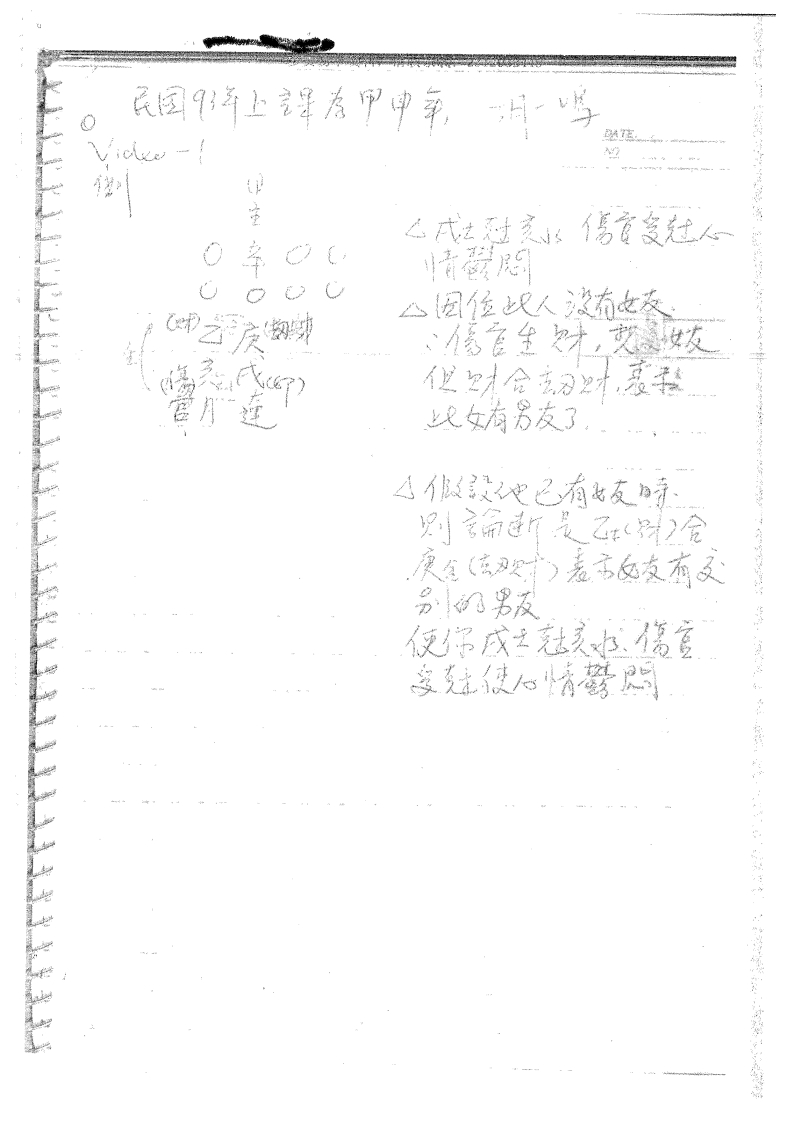 民国93年上課為甲申年,
DATE.
NO
Video-1
例
日
主
○ 辛 ○ ○
○ ○ ○ ○
(財) 乙 庚 (劫財)
(傷官) 亥 戌 (印)
月 運
△戌土尅亥水 傷官受尅心
情鬱悶
△因位此人沒有女友.
∴傷官生財, 女友
但財合劫財,表示
此女有男友了.
△假設他已有女友時.
則論断是乙木(財)合
庚金(劫財)表示女友有交
别的男友
使你戌土尅亥水.傷官
受尅使心情鬱悶